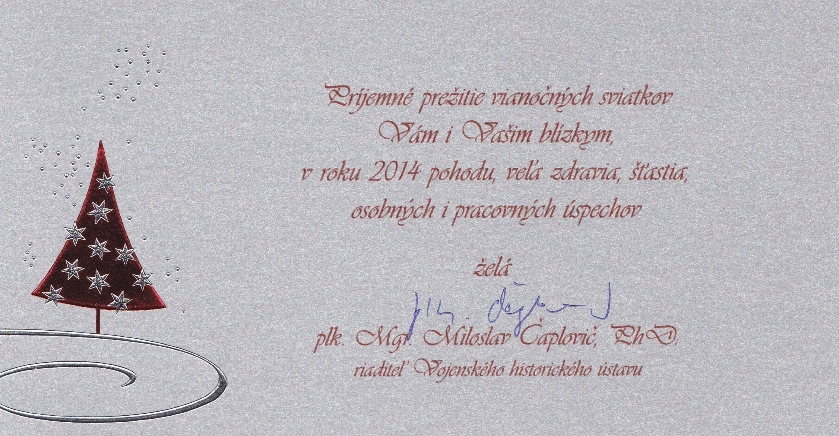 Príjemné prežitie vianočných sviatkov
Vám i Vašim blízkym,
v roku 2014 pohodu, veľa zdravia, šťastia,
osobných i pracovných úspechov
želá
plk. Mgr. Miloslav Čaplovič, PhD.
riaditeľ Vojenského historického ústavu